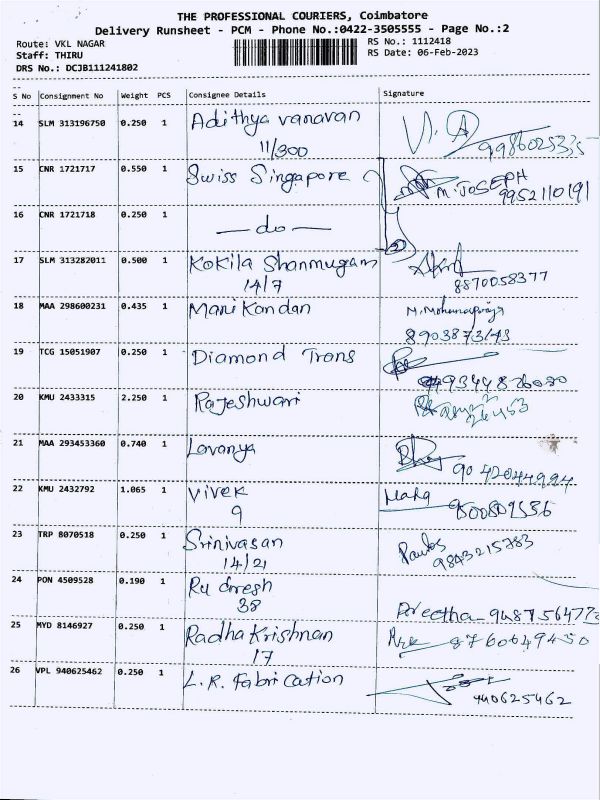 THE PROFESSIONAL COURIERS, Coimbatore
Delivery Runsheet - PCM - Phone No.:0422-3505555 - Page No.:2
Route: VKL NAGAR RS No.: 1112418
Staff: THIRU RS Date: 06-Feb-2023
DRS No.: DCJB111241802
S No Consignment No Weight PCS Consignee Details Signature
14 SLM 313196750 0.250 1 Adithya vanavan
11/300 9986025335
15 CNR 1721717 0.550 1 Swiss Singapore M. JOSEPH
9952110191
16 CNR 1721718 0.250 1 — do —
17 SLM 313282011 0.500 1 Kokila Shanmugam
14/7 8870058377
18 MAA 298600231 0.435 1 Mani Kandan
8903873143
19 TCG 15051907 0.250 1 Diamond Trans
9344826080
20 KMU 2433315 2.250 1 Rajeshwari
21 MAA 293453360 0.740 1 Lavanya
9042044994
22 KMU 2432792 1.065 1 Vivek
9
23 TRP 8070518 0.250 1 Srinivasan
14/21 9843215783
24 PON 4509528 0.190 1
38 Preetha - 
25 MYD 8146927 0.250 1 Radha Krishnan 8760649450
17
26 VPL 940625462 0.250 1 L.R. Fabrication
940625462